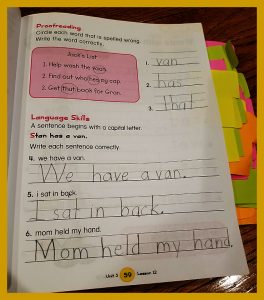 Proofreading
Circle each word that is spelled wrong.
Write the word correctly.
Jack's List
1. Help wash the
2. Find out who my cap.
3. Get that book for Gran.
1. van
2. has
3. that
Language Skills
A sentence begins with a capital letter.
Stan has a van.
Write each sentence correctly.
4. we have a van.
We have a van.
5. i sat in back.
I sat in back.
6. mom held my hand.
Mom held my hand.
Unit 3 59 Lesson 12